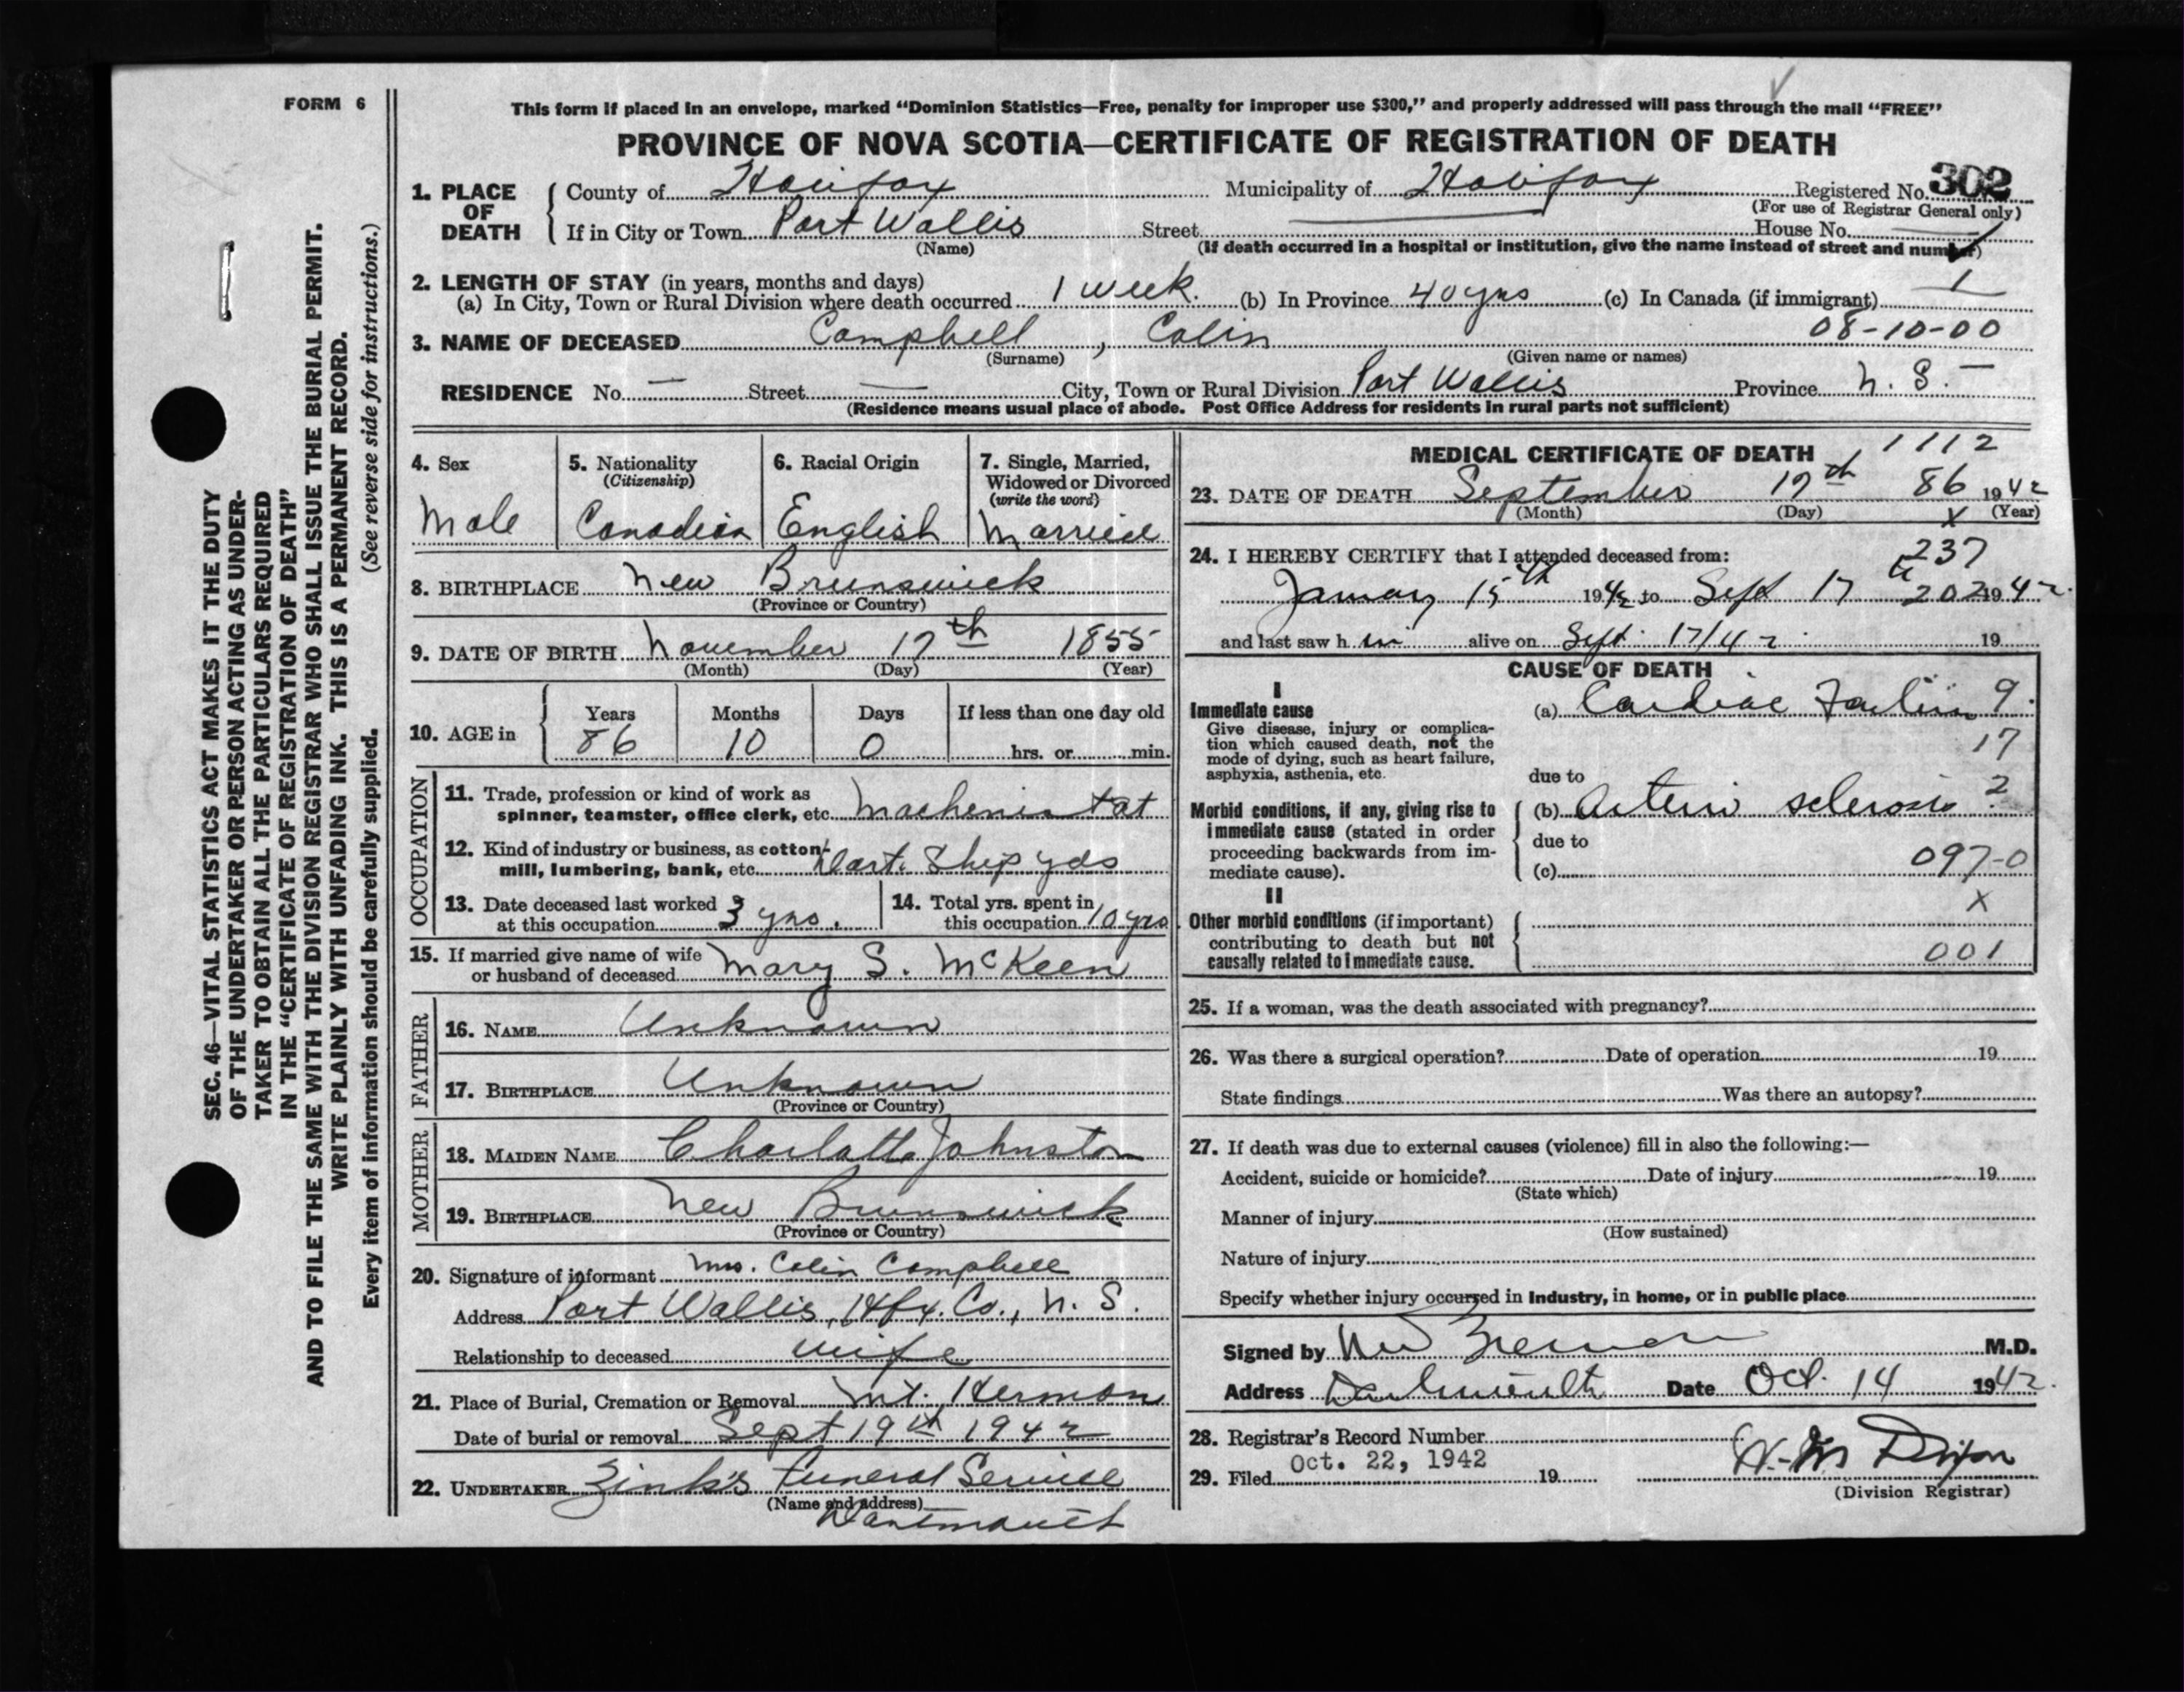 FORM 6
This form if placed in an envelope, marked “Dominion Statistics—Free, penalty for improper use $300,” and properly addressed will pass through the mail “FREE”
PROVINCE OF NOVA SCOTIA—CERTIFICATE OF REGISTRATION OF DEATH
SEC. 46—VITAL STATISTICS ACT MAKES IT THE DUTY
OF THE UNDERTAKER OR PERSON ACTING AS UNDER-
TAKER TO OBTAIN ALL THE PARTICULARS REQUIRED
IN THE “CERTIFICATE OF REGISTRATION OF DEATH”
AND TO FILE THE SAME WITH THE DIVISION REGISTRAR WHO SHALL ISSUE THE BURIAL PERMIT.
WRITE PLAINLY WITH UNFADING INK. THIS IS A PERMANENT RECORD.
Every item of information should be carefully supplied. (See reverse side for instructions.)
1. PLACE OF DEATH
County of Halifax Municipality of Halifax Registered No. 302
(For use of Registrar General only)
If in City or Town Port Wallis Street House No.
(Name) (If death occurred in a hospital or institution, give the name instead of street and number)
2. LENGTH OF STAY (in years, months and days)
(a) In City, Town or Rural Division where death occurred 1 week. (b) In Province 40 yrs (c) In Canada (if immigrant) 1
08-10-00
3. NAME OF DECEASED Campbell, Colin
(Surname) (Given name or names)
RESIDENCE No. — Street — City, Town or Rural Division Port Wallis Province N. S. —
(Residence means usual place of abode. Post Office Address for residents in rural parts not sufficient)
4. Sex
Male
5. Nationality
(Citizenship)
Canadian
6. Racial Origin
English
7. Single, Married,
Widowed or Divorced
(write the word)
Married
8. BIRTHPLACE New Brunswick
(Province or Country)
9. DATE OF BIRTH November 17th 1855
(Month) (Day) (Year)
10. AGE in
Years Months Days If less than one day old
86 10 0 hrs. or min.
OCCUPATION
11. Trade, profession or kind of work as
spinner, teamster, office clerk, etc. Machenist at
12. Kind of industry or business, as cotton-
mill, lumbering, bank, etc. Dart. Ship yds
13. Date deceased last worked
at this occupation 3 yrs.
14. Total yrs. spent in
this occupation 10 yrs
15. If married give name of wife
or husband of deceased Mary S. McKeen
FATHER
16. NAME Unknown
17. BIRTHPLACE Unknown
(Province or Country)
MOTHER
18. MAIDEN NAME Charlotte Johnston
19. BIRTHPLACE New Brunswick
(Province or Country)
20. Signature of informant Mrs. Colin Campbell
Address Port Wallis, Hfx. Co., N. S.
Relationship to deceased wife
21. Place of Burial, Cremation or Removal Mt. Hermon
Date of burial or removal Sept 19th 1942
22. UNDERTAKER Zink's Funeral Service
(Name and address)
Dartmouth
MEDICAL CERTIFICATE OF DEATH 1112
23. DATE OF DEATH September 17th 86 1942
(Month) (Day) x (Year)
24. I HEREBY CERTIFY that I attended deceased from:
237
January 15th 1942 to Sept 17th 202 1942
and last saw him alive on Sept. 17/42 19
CAUSE OF DEATH
I
Immediate cause
Give disease, injury or complica-
tion which caused death, not the
mode of dying, such as heart failure,
asphyxia, asthenia, etc.
(a) Cardiac Failure 9.
17
due to
Morbid conditions, if any, giving rise to
immediate cause (stated in order
proceeding backwards from im-
mediate cause).
(b) Arterio sclerosis 2
due to
(c) 097-0
x
II
Other morbid conditions (if important)
contributing to death but not
causally related to immediate cause.
001
25. If a woman, was the death associated with pregnancy?
26. Was there a surgical operation? Date of operation 19
State findings Was there an autopsy?
27. If death was due to external causes (violence) fill in also the following:—
Accident, suicide or homicide? Date of injury 19
(State which)
Manner of injury
(How sustained)
Nature of injury
Specify whether injury occurred in industry, in home, or in public place
Signed by M.D.
Address Dartmouth Date Oct. 14 1942.
28. Registrar's Record Number
29. Filed Oct. 22, 1942 19 Dixon
(Division Registrar)